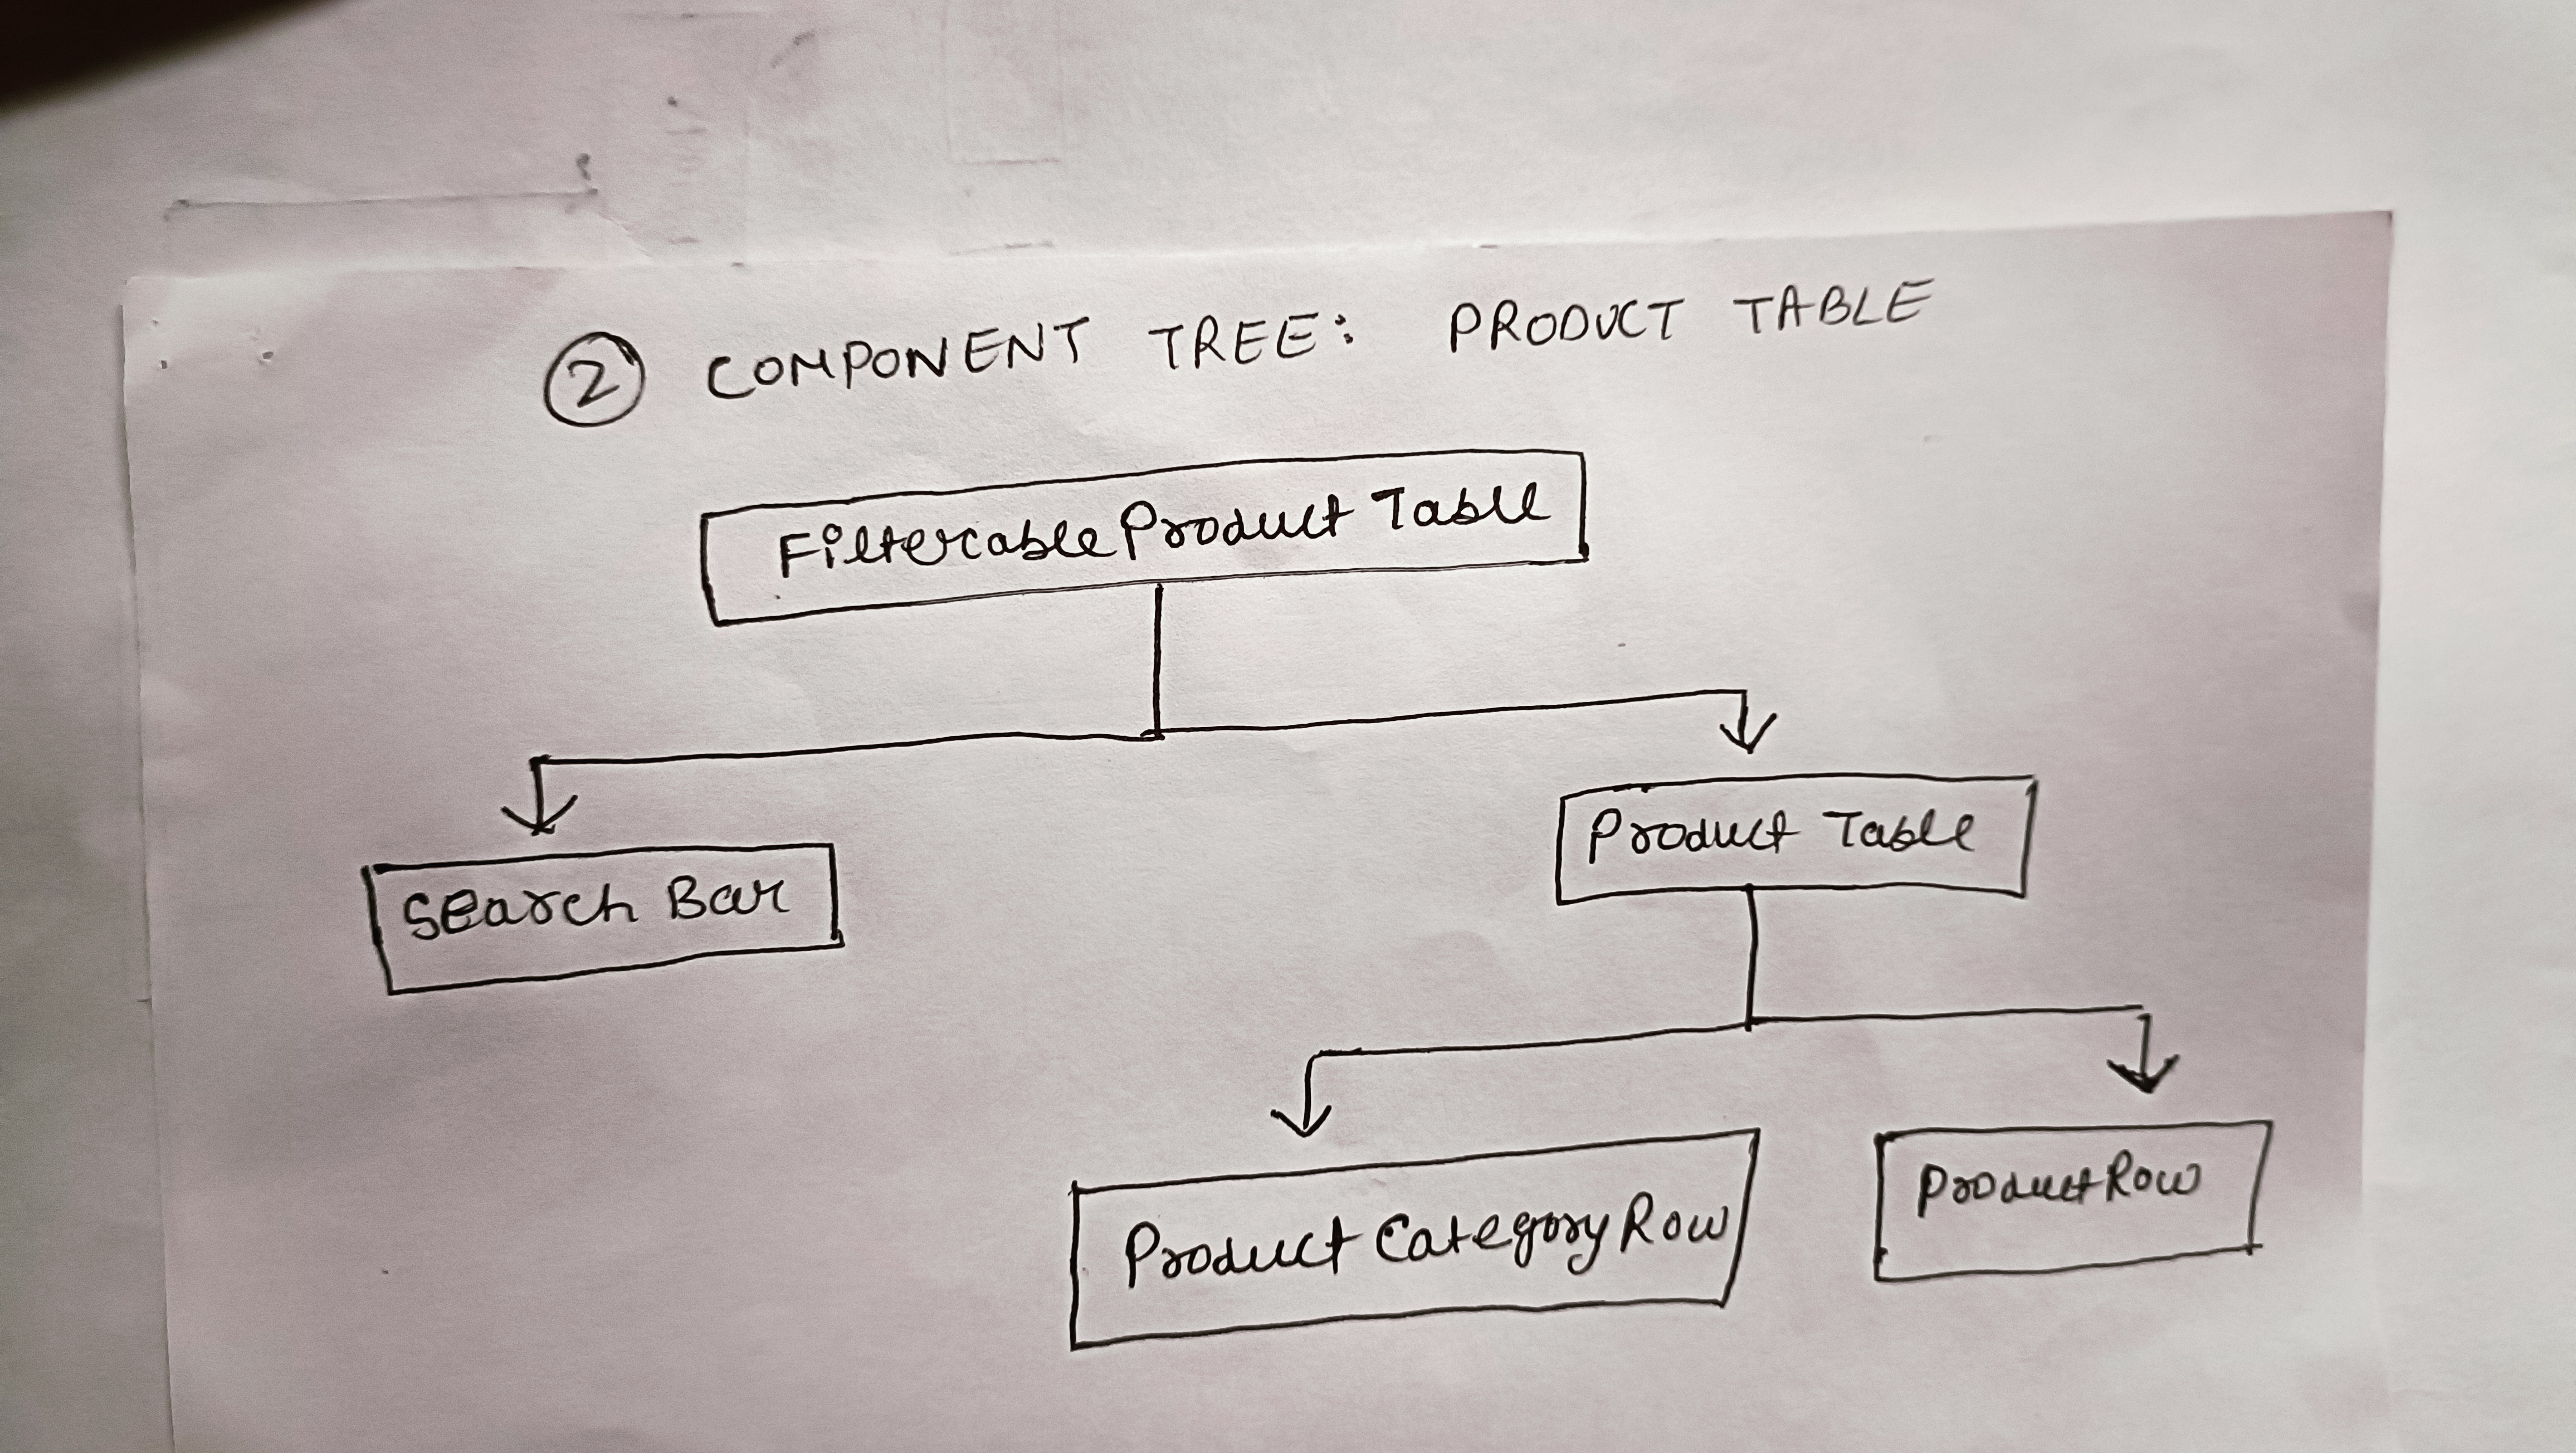 2 COMPONENT TREE: PRODUCT TABLE
FiltercableProduct Table
Search Bar
Product Table
Product Category Row
ProductRow